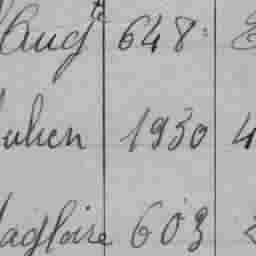 Aug^te 648
ulien 1930 4
agloire 603